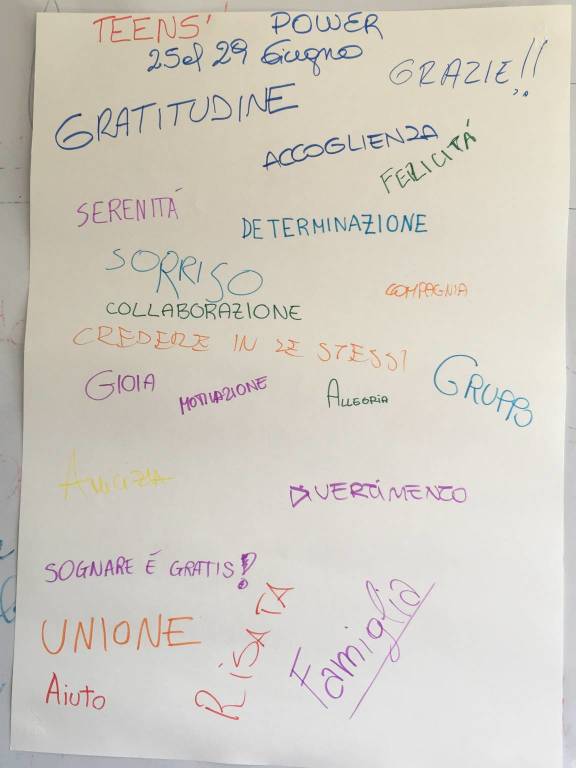 TEENS' POWER
25 al 29 Giugno
GRAZIE!!
GRATITUDINE
ACCOGLIENZA
FELICITÁ
SERENITÁ
DETERMINAZIONE
SORRISO
COMPAGNIA
COLLABORAZIONE
CREDERE IN SE STESSI
GIOIA
MOTIVAZIONE
ALLEGRIA
GRUPPO
AMICIZIA
DIVERTIMENTO
SOGNARE É GRATIS!
UNIONE
RISATA
Famiglia
Aiuto